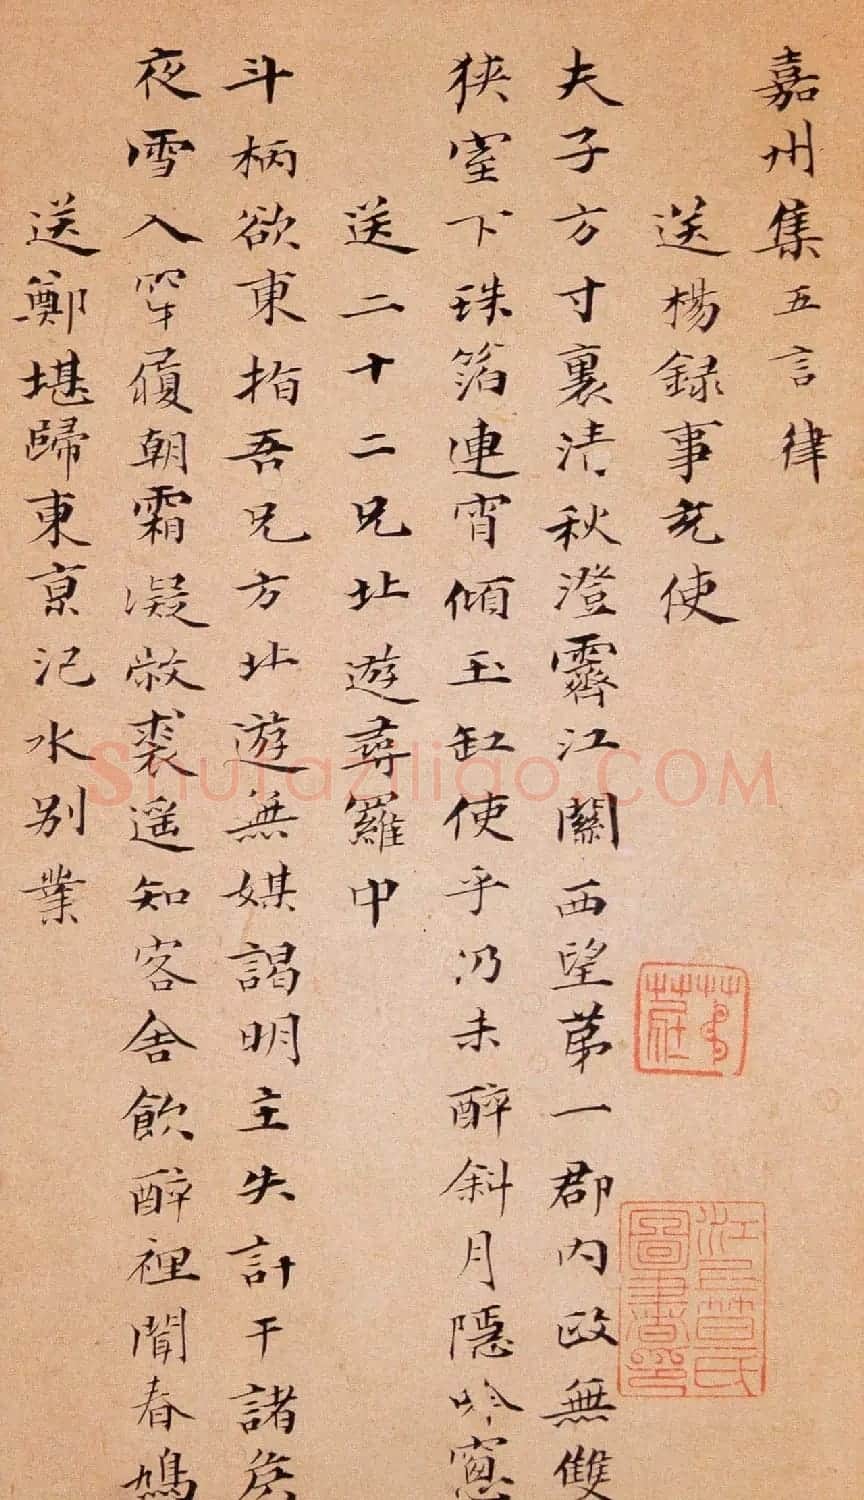 嘉州集五言律
送楊録事充使
夫子方寸裏清秋澄霽江關西望第一郡内政無雙
狹室下珠箔連宵傾玉缸使乎仍未醉斜月隱吟窓
送二十二兄北遊尋羅中
斗柄欲東指吾兄方北遊無媒謁明主失計干諸侯
夜雪入穿履朝霜凝敝裘遥知客舍飲醉裡聞春鳩
送鄭堪歸東京汜水别業
江上笪氏圖書印
Shufaziliao.COM